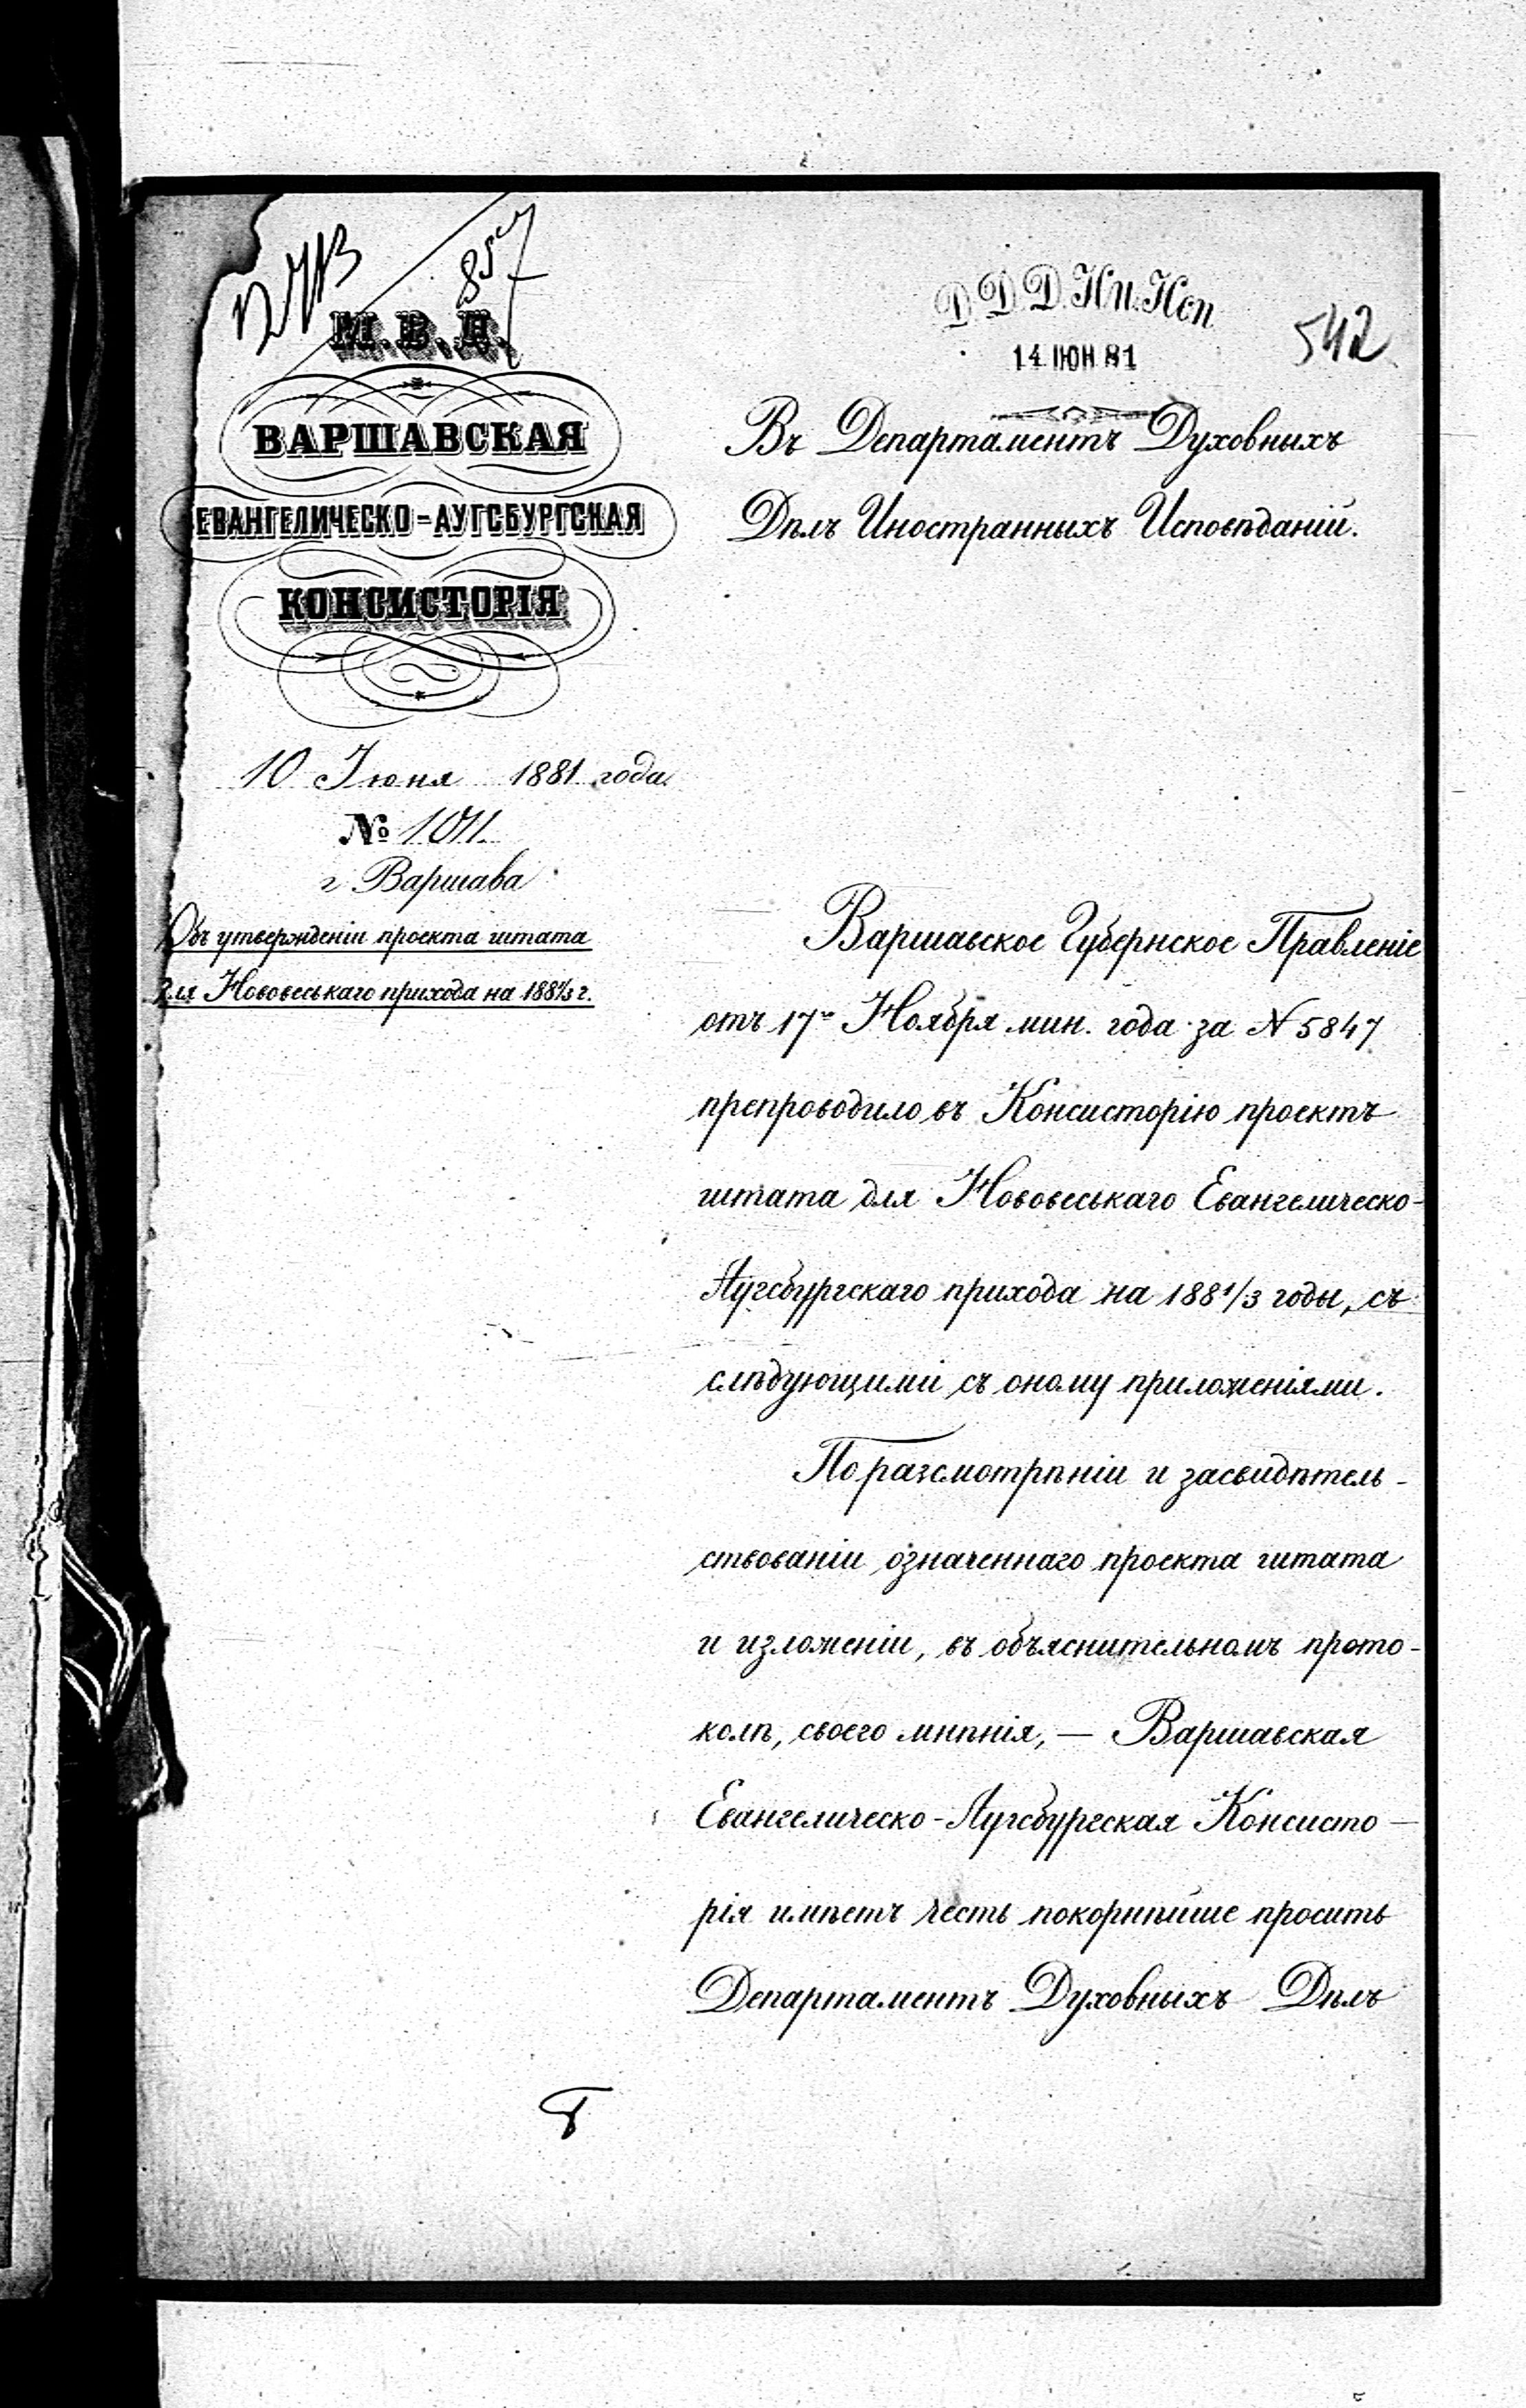 857
М. В. Д.
ВАРШАВСКАЯ
ЕВАНГЕЛИЧЕСКО-АУГСБУРГСКАЯ
КОНСИСТОРІЯ
10 Іюня 1881 года
№ 1011
г Варшава
Объ утвержденіи проекта штата
для Нововеськаго прихода на 1881/3 г.
Д. Д. Д. Ин. Исп
14 ІЮН 81
542
Въ Департаментъ Духовныхъ
Дѣлъ Иностранныхъ Исповѣданій.
Варшавское Губернское Правленіе
отъ 17го Ноября мин. года за N 5847
препроводило въ Консисторію проектъ
штата для Нововеськаго Евангелическо-
Аугсбургскаго прихода на 1881/3 годы, съ
слѣдующими съ оному приложеніями.
По разсмотрѣніи и засвидѣтель-
ствованіи означеннаго проекта штата
и изложеніи, въ объяснительномъ прото-
колѣ, своего мнѣнія, — Варшавская
Евангелическо-Аугсбургская Консисто-
рія имѣетъ честь покорнѣйше просить
Департаментъ Духовныхъ Дѣлъ